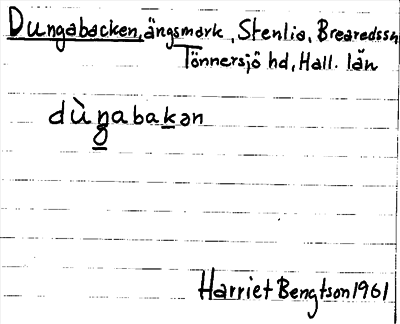 Dungabacken, ängsmark, Stenlia, Brearedssn
Tönnersjö hd, Hall. län
dùngabakən
Harriet Bengtson 1961